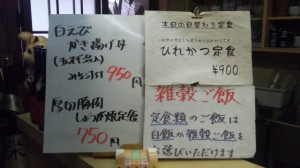 白えび
かき揚げ丼
950円
厚切豚肉
しょうが焼定食
750円
本日の日替わり定食
ひれかつ定食
¥900
雑穀ご飯
定食類のご飯は
白飯か雑穀ご飯を
お選びいただけます